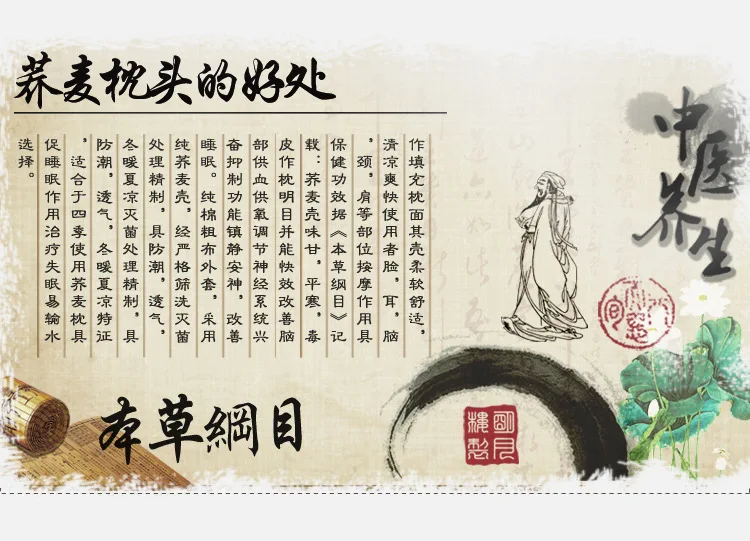 荞麦枕头的好处
中医养生
作填充枕面其壳柔软舒适，
清凉爽快使用者脸，耳，脑
，颈，肩等部位按摩作用具
保健功效据《本草纲目》记
载：荞麦壳味甘，平寒，毒
皮作枕明目并能快效改善脑
部供血供氧调节神经系统兴
奋抑制功能镇静安神，改善
睡眠。纯棉粗布外套，采用
纯荞麦壳，经严格筛洗灭菌
处理精制，具防潮，透气，
冬暖夏凉灭菌处理精制，具
防潮，透气，冬暖夏凉特征
，适合于四季使用荞麦枕具
促睡眠作用治疗失眠易输水
选择。
本草綱目